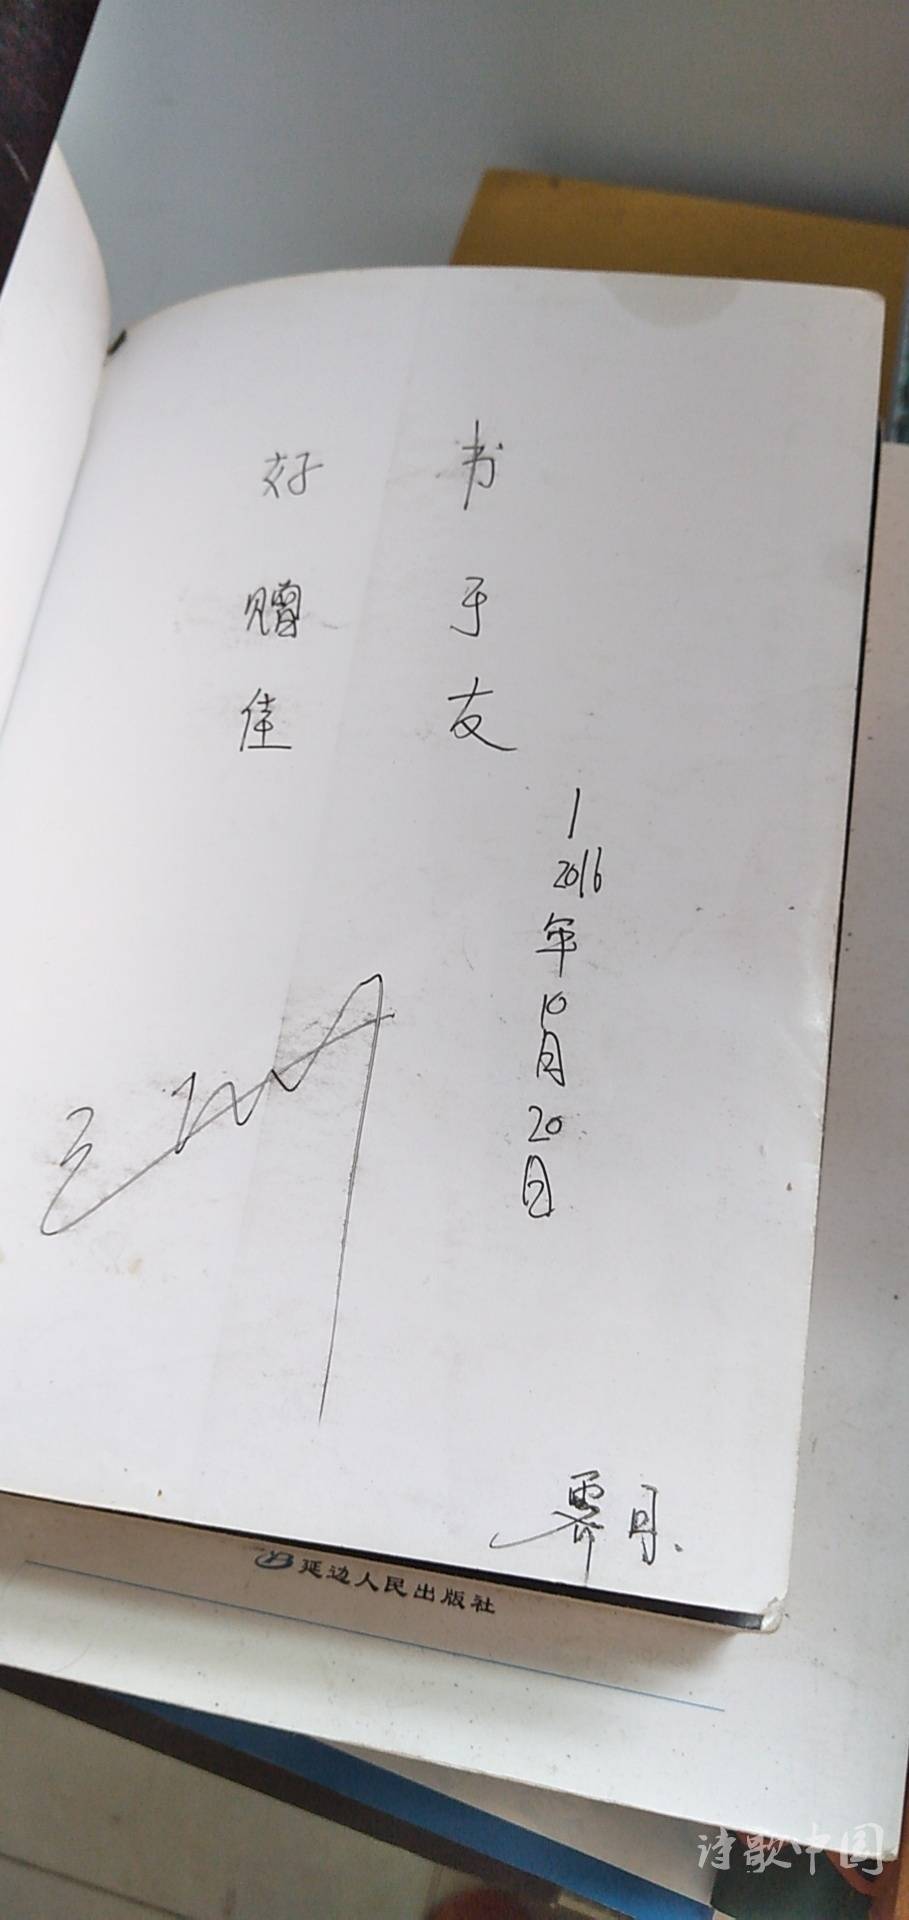 好书
赠于
佳友
2016年10月20日
霁月.
延边人民出版社
诗歌中国